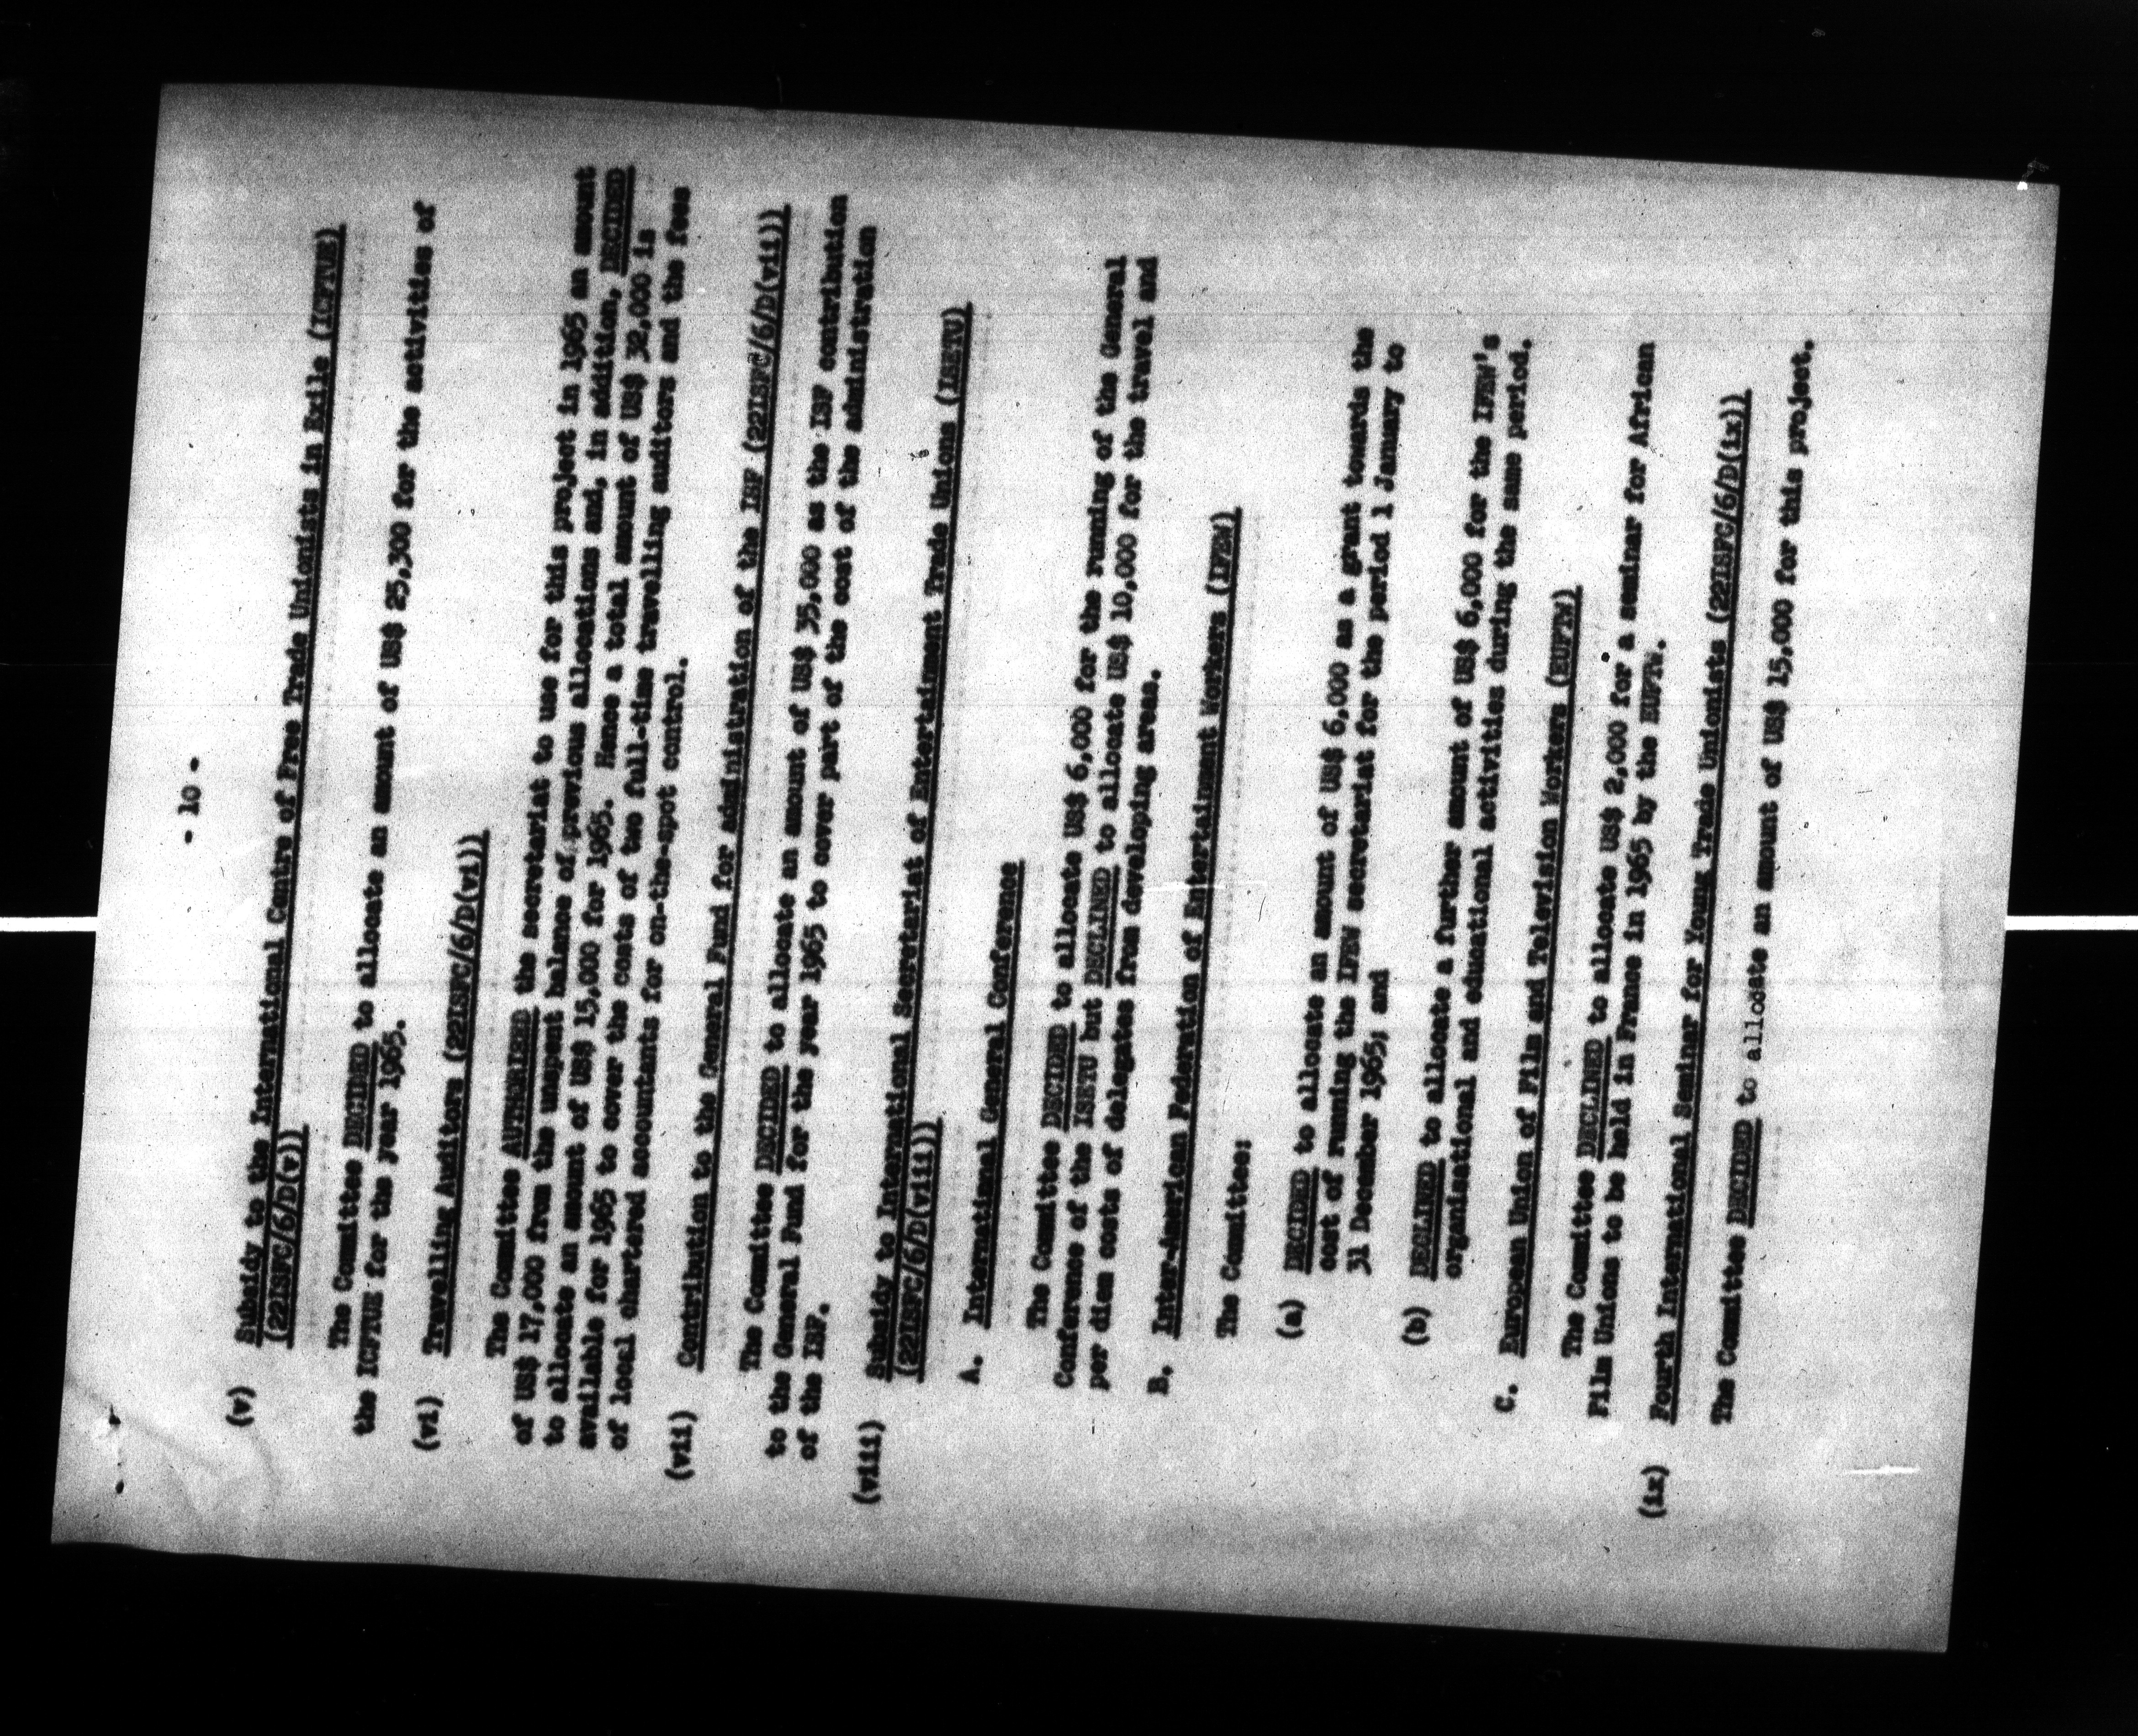 - 10 -
(v) Subsidy to the International Centre of Free Trade Unionists in Exile (ICFTUE)
(22ISFC/6/D(v))
The Committee DECIDED to allocate an amount of US$ 25,300 for the activities of
the ICFTUE for the year 1965.
(vi) Travelling Auditors (22ISFC/6/D(vi))
The Committee AUTHORIZED the secretariat to use for this project in 1965 an amount
of US$ 17,000 from the unspent balance of previous allocations and, in addition, DECIDED
to allocate an amount of US$ 15,000 for 1965. Hence a total amount of US$ 32,000 is
available for 1965 to cover the costs of two full-time travelling auditors and the fees
of local chartered accountants for on-the-spot control.
(vii) Contribution to the General Fund for administration of the ISF (22ISFC/6/D(vii))
The Committee DECIDED to allocate an amount of US$ 35,000 as the ISF contribution
to the General Fund for the year 1965 to cover part of the cost of the administration
of the ISF.
(viii) Subsidy to International Secretariat of Entertainment Trade Unions (ISETU)
(22ISFC/6/D(viii))
A. International General Conference
The Committee DECIDED to allocate US$ 6,000 for the running of the General
Conference of the ISETU but DECLINED to allocate US$ 10,000 for the travel and
per diem costs of delegates from developing areas.
B. Inter-American Federation of Entertainment Workers (IFEW)
The Committee:
(a) DECIDED to allocate an amount of US$ 6,000 as a grant towards the
cost of running the IFEW secretariat for the period 1 January to
31 December 1965; and
(b) DECLINED to allocate a further amount of US$ 6,000 for the IFEW's
organisational and educational activities during the same period.
C. European Union of Film and Television Workers (EUFTW)
The Committee DECLINED to allocate US$ 2,000 for a seminar for African
Film Unions to be held in France in 1965 by the EUFTW.
(ix) Fourth International Seminar for Young Trade Unionists (22ISFC/6/D(ix))
The Committee DECIDED to allocate an amount of US$ 15,000 for this project.